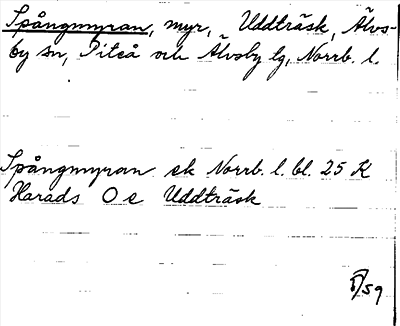 Spångmyran, myr, Uddträsk, Älvs-
by sn, Piteå och Älvsby lg, Norrb. l.
Spångmyran ek Norrb. l. bl. 25 K
Harads O e Uddträsk
/59